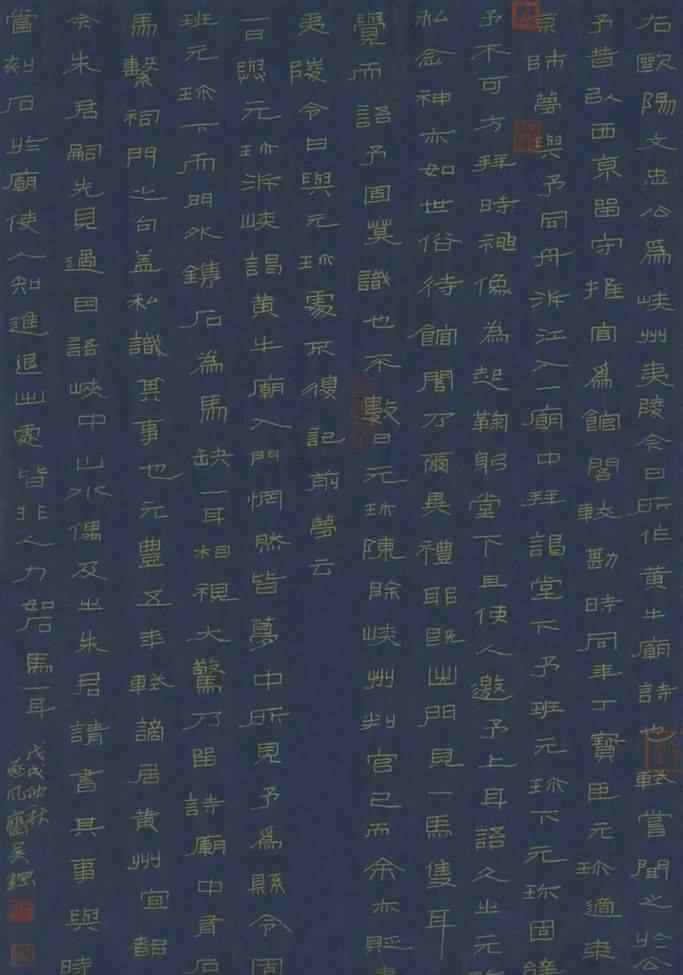 右歐陽文忠公為峽州夷陵令日所作黃牛廟詩也軾嘗聞之於公
予昔以西京留守推官為館閣較勘時同年丁寶臣元珍適來
京師夢與予同舟泝江入一廟中拜謁堂下予班元珍下元珍固辭
予不可方拜時神像為起鞠躬堂下且使人邀予上耳語久之元珍
私念神亦如世俗待館閣乃爾異禮耶既出門見一馬隻耳
覺而語予固莫識也不數日元珍除峽州判官已而余亦貶
夷陵令日與元珍處不復記前夢云
一日與元珍泝峽謁黃牛廟入門惘然皆夢中所見予為縣令固
班元珍下而門外鐫石為馬缺一耳相視大驚乃留詩廟中有石
馬繫祠門之句蓋私識其事也元豐五年軾謫居黃州宜都
令朱君嗣先見過因語峽中山水偶及之朱君請書其事與詩
當刻石於廟使人知進退出處皆非人力如石馬一耳
戊戌仲秋
吳